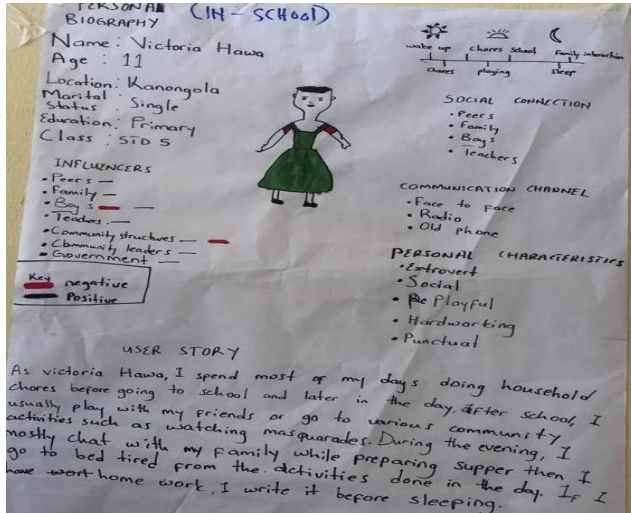 PERSONAL (IN-SCHOOL)
BIOGRAPHY
Name: Victoria Hawa
Age: 11
Location: Kanongola
Marital
Status: Single
Education: Primary
Class: STD 5
wake up chores school Family interaction
chores playing sleep
INFLUENCERS
• Peers —
• Family —
• Boys — —
• Teachers —
• Community structures — —
• Community leaders —
• Government —
Key
negative
Positive
SOCIAL CONNECTION
• Peers
• Family
• Boys
• Teachers
COMMUNICATION CHANNEL
• Face to face
• Radio
• Old phone
PERSONAL CHARACTERISTICS
• Extrovert
• Social
• Playful
• Hardworking
• Punctual
USER STORY
As victoria Hawa, I spend most of my days doing household
chores before going to school and later in the day. After school, I
usually play with my friends or go to various community
activities such as watching masquarades. During the evening, I
mostly chat with my family while preparing supper then I
go to bed tired from the activities done in the day. If I
have home work, I write it before sleeping.